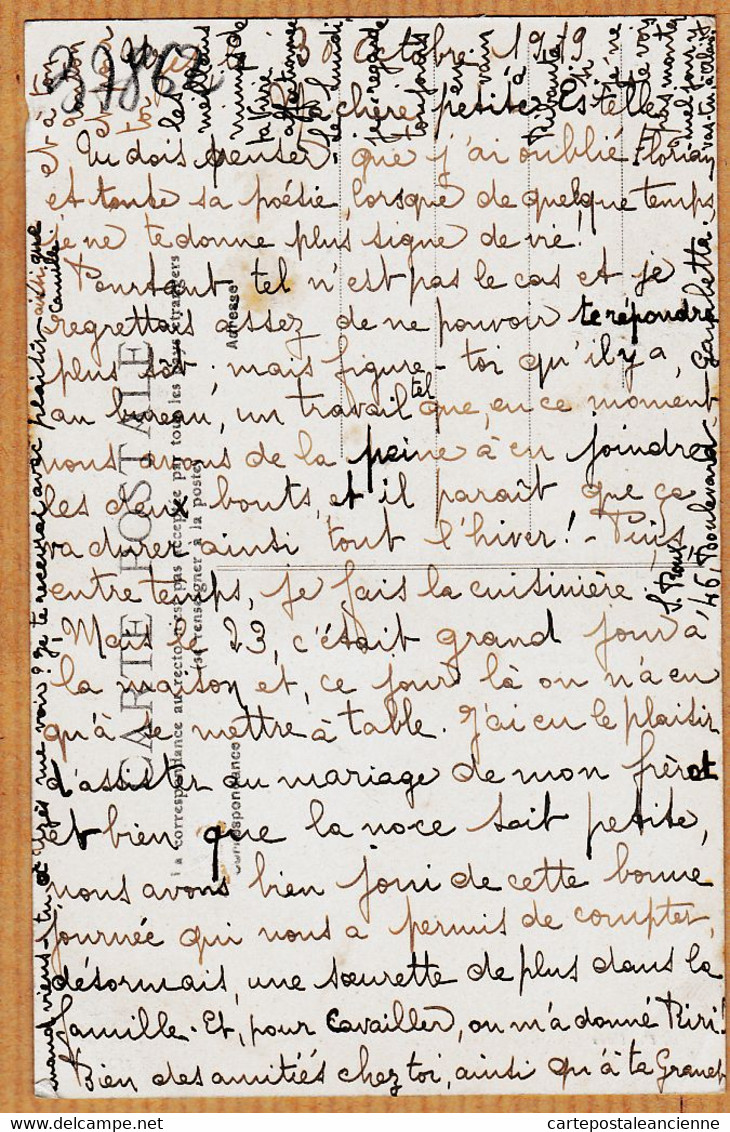 37862
30 Octobre 1919
Ma chère petite Estelle,
Tu dois penser que j'ai oublié Florian
et toute sa poésie, lorsque de quelque temps,
je ne te donne plus signe de vie!
Pourtant tel n'est pas le cas et je
regrettais assez de ne pouvoir te répondre
plus tôt; mais figure-toi qu'il y a,
au bureau, un travail tel que, en ce moment,
nous avons de la peine à en joindre
les deux bouts, et il paraît que ça
va durer ainsi tout l'hiver! - Puis,
entre temps, je fais la cuisinière.
Mais le 23, c'était grand jour à
la maison et, ce jour là on n'a eu
qu'à se mettre à table. J'ai eu le plaisir
d'assister au mariage de mon frère et
et bien que la noce soit petite,
nous avons bien joui de cette bonne
journée qui nous a permis de compter,
désormais, une sœurette de plus dans la
famille. Et, pour Cavailler, on m'a donné Riri!
Bien des amitiés chez toi, ainsi qu'à ta Grand
et à ton
les
meilleurs
de
ta
affectionnée
Le lundi
je regarde
toujours
en
vain
si
je ne
vois
pas monter
46, Boulevard Gambetta.
Quand viens-tu à me voir? Je te recevrai avec plaisir ainsi que
Camille.
CARTE POSTALE
La correspondance au recto n'est pas acceptée par tous les pays étrangers
(se renseigner à la poste)
Correspondance
Adresse
cartepostaleancienne